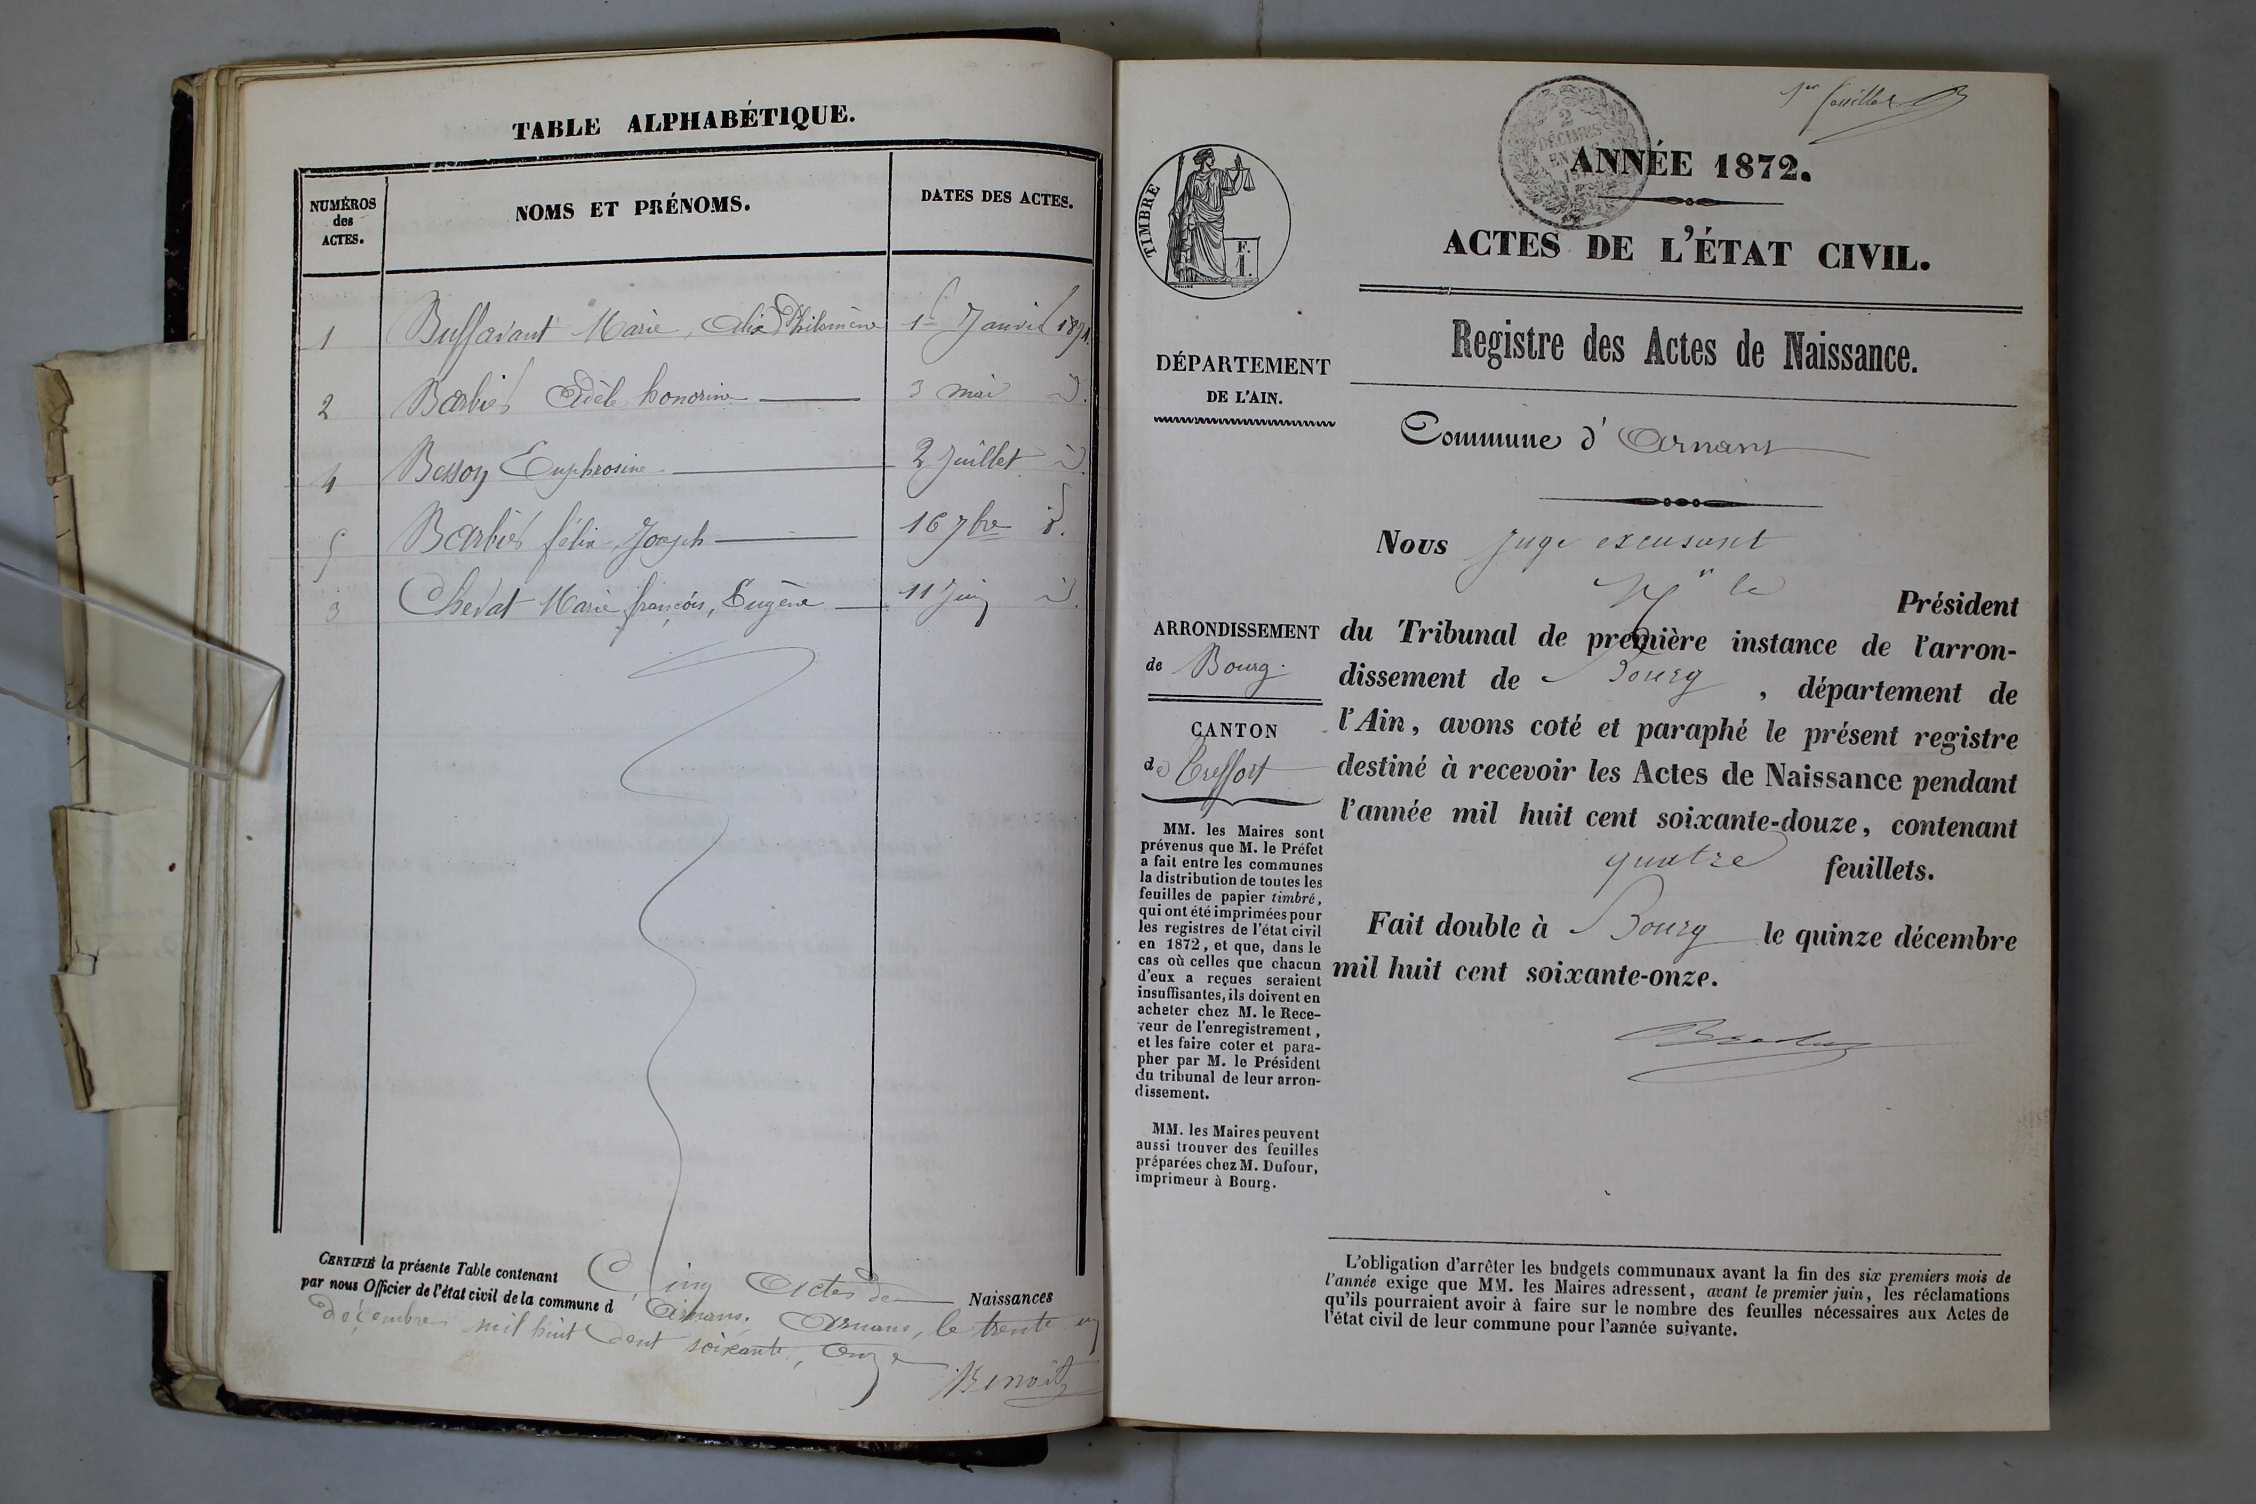 TABLE ALPHABÉTIQUE.
NUMÉROS
des
ACTES.
NOMS ET PRÉNOMS.
DATES DES ACTES.
1 Buffavant Marie, Philomène 1er Janvier 1871.
2 Barbier Adèle honorine 3 mai id.
4 Besson Euphrosine 2 Juillet id.
5 Barbier félix, Joseph 16 7bre id.
3 Chevat Marie françois, Eugène 11 Juin id.
CERTIFIÉ la présente Table contenant Cinq Actes de Naissances
par nous Officier de l'état civil de la commune d Arnans. Arnans, le trente un
décembre mil huit cent soixante, onze
Benoit
1er feuillet
2
DÉCIMES
EN SUS
TIMBRE
F.
1.
ANNÉE 1872.
ACTES DE L'ÉTAT CIVIL.
Registre des Actes de Naissance.
DÉPARTEMENT
DE L'AIN.
Commune d' Arnans
ARRONDISSEMENT
de Bourg.
CANTON
de Treffort
MM. les Maires sont
prévenus que M. le Préfet
a fait entre les communes
la distribution de toutes les
feuilles de papier timbré,
qui ont été imprimées pour
les registres de l'état civil
en 1872, et que, dans le
cas où celles que chacun
d'eux a reçues seraient
insuffisantes, ils doivent en
acheter chez M. le Rece-
veur de l'enregistrement,
et les faire coter et para-
pher par M. le Président
du tribunal de leur arron-
dissement.
MM. les Maires peuvent
aussi trouver des feuilles
préparées chez M. Dufour,
imprimeur à Bourg.
Nous Juge excusant
Mr le Président
du Tribunal de première instance de l'arron-
dissement de Bourg, département de
l'Ain, avons coté et paraphé le présent registre
destiné à recevoir les Actes de Naissance pendant
l'année mil huit cent soixante-douze, contenant
quatre feuillets.
Fait double à Bourg le quinze décembre
mil huit cent soixante-onze.
L'obligation d'arrêter les budgets communaux avant la fin des six premiers mois de
l'année exige que MM. les Maires adressent, avant le premier juin, les réclamations
qu'ils pourraient avoir à faire sur le nombre des feuilles nécessaires aux Actes de
l'état civil de leur commune pour l'année suivante.